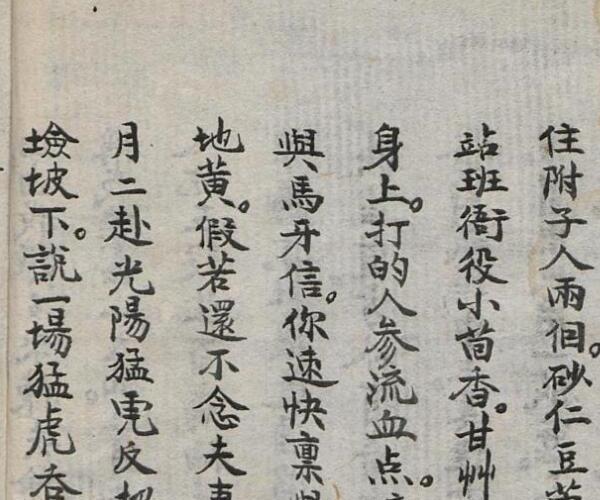 住附子人兩個。砂仁豆
站班衙役小茴香。甘艸
身上。打的人參流血点。
與馬牙信。你速快禀
地黄。假若還不念夫
月二赴光陽猛虎反
坡下。說一場猛虎吞